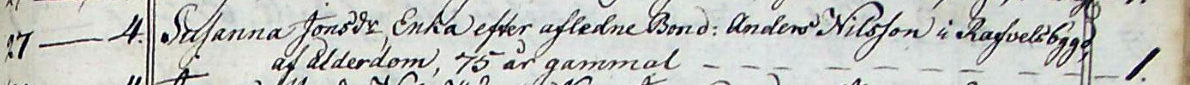 27 — 4. Susanna Jonsdr, Enka efter afledne Bond: Anders Nilsson i Rafvelsbygg,
af Ålderdom, 75 år gammal — — — — — — — 1.